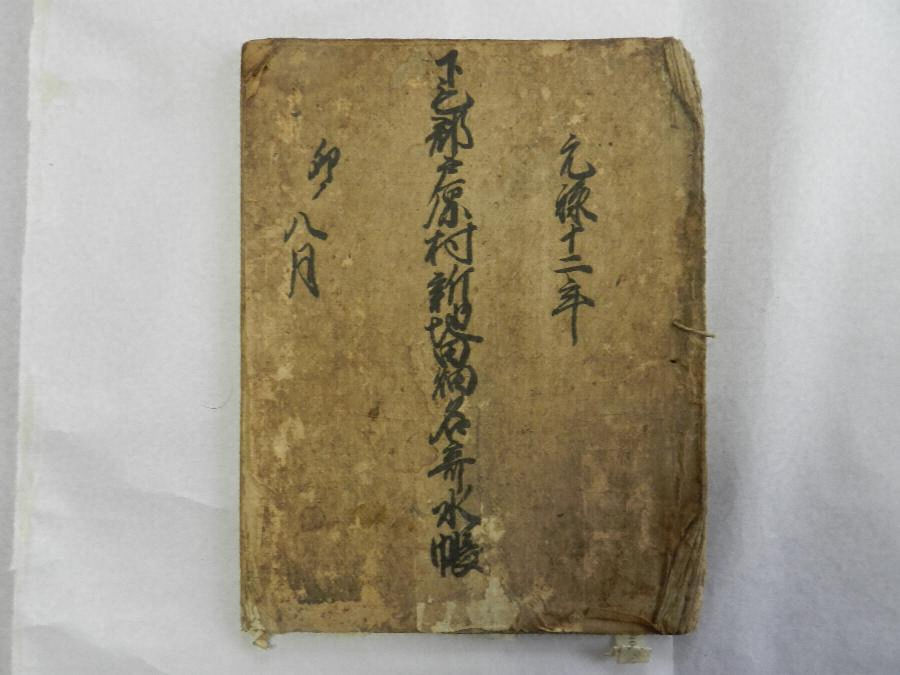 元禄十二年
下毛郡戸原村新地田畑名寄水帳
卯八月